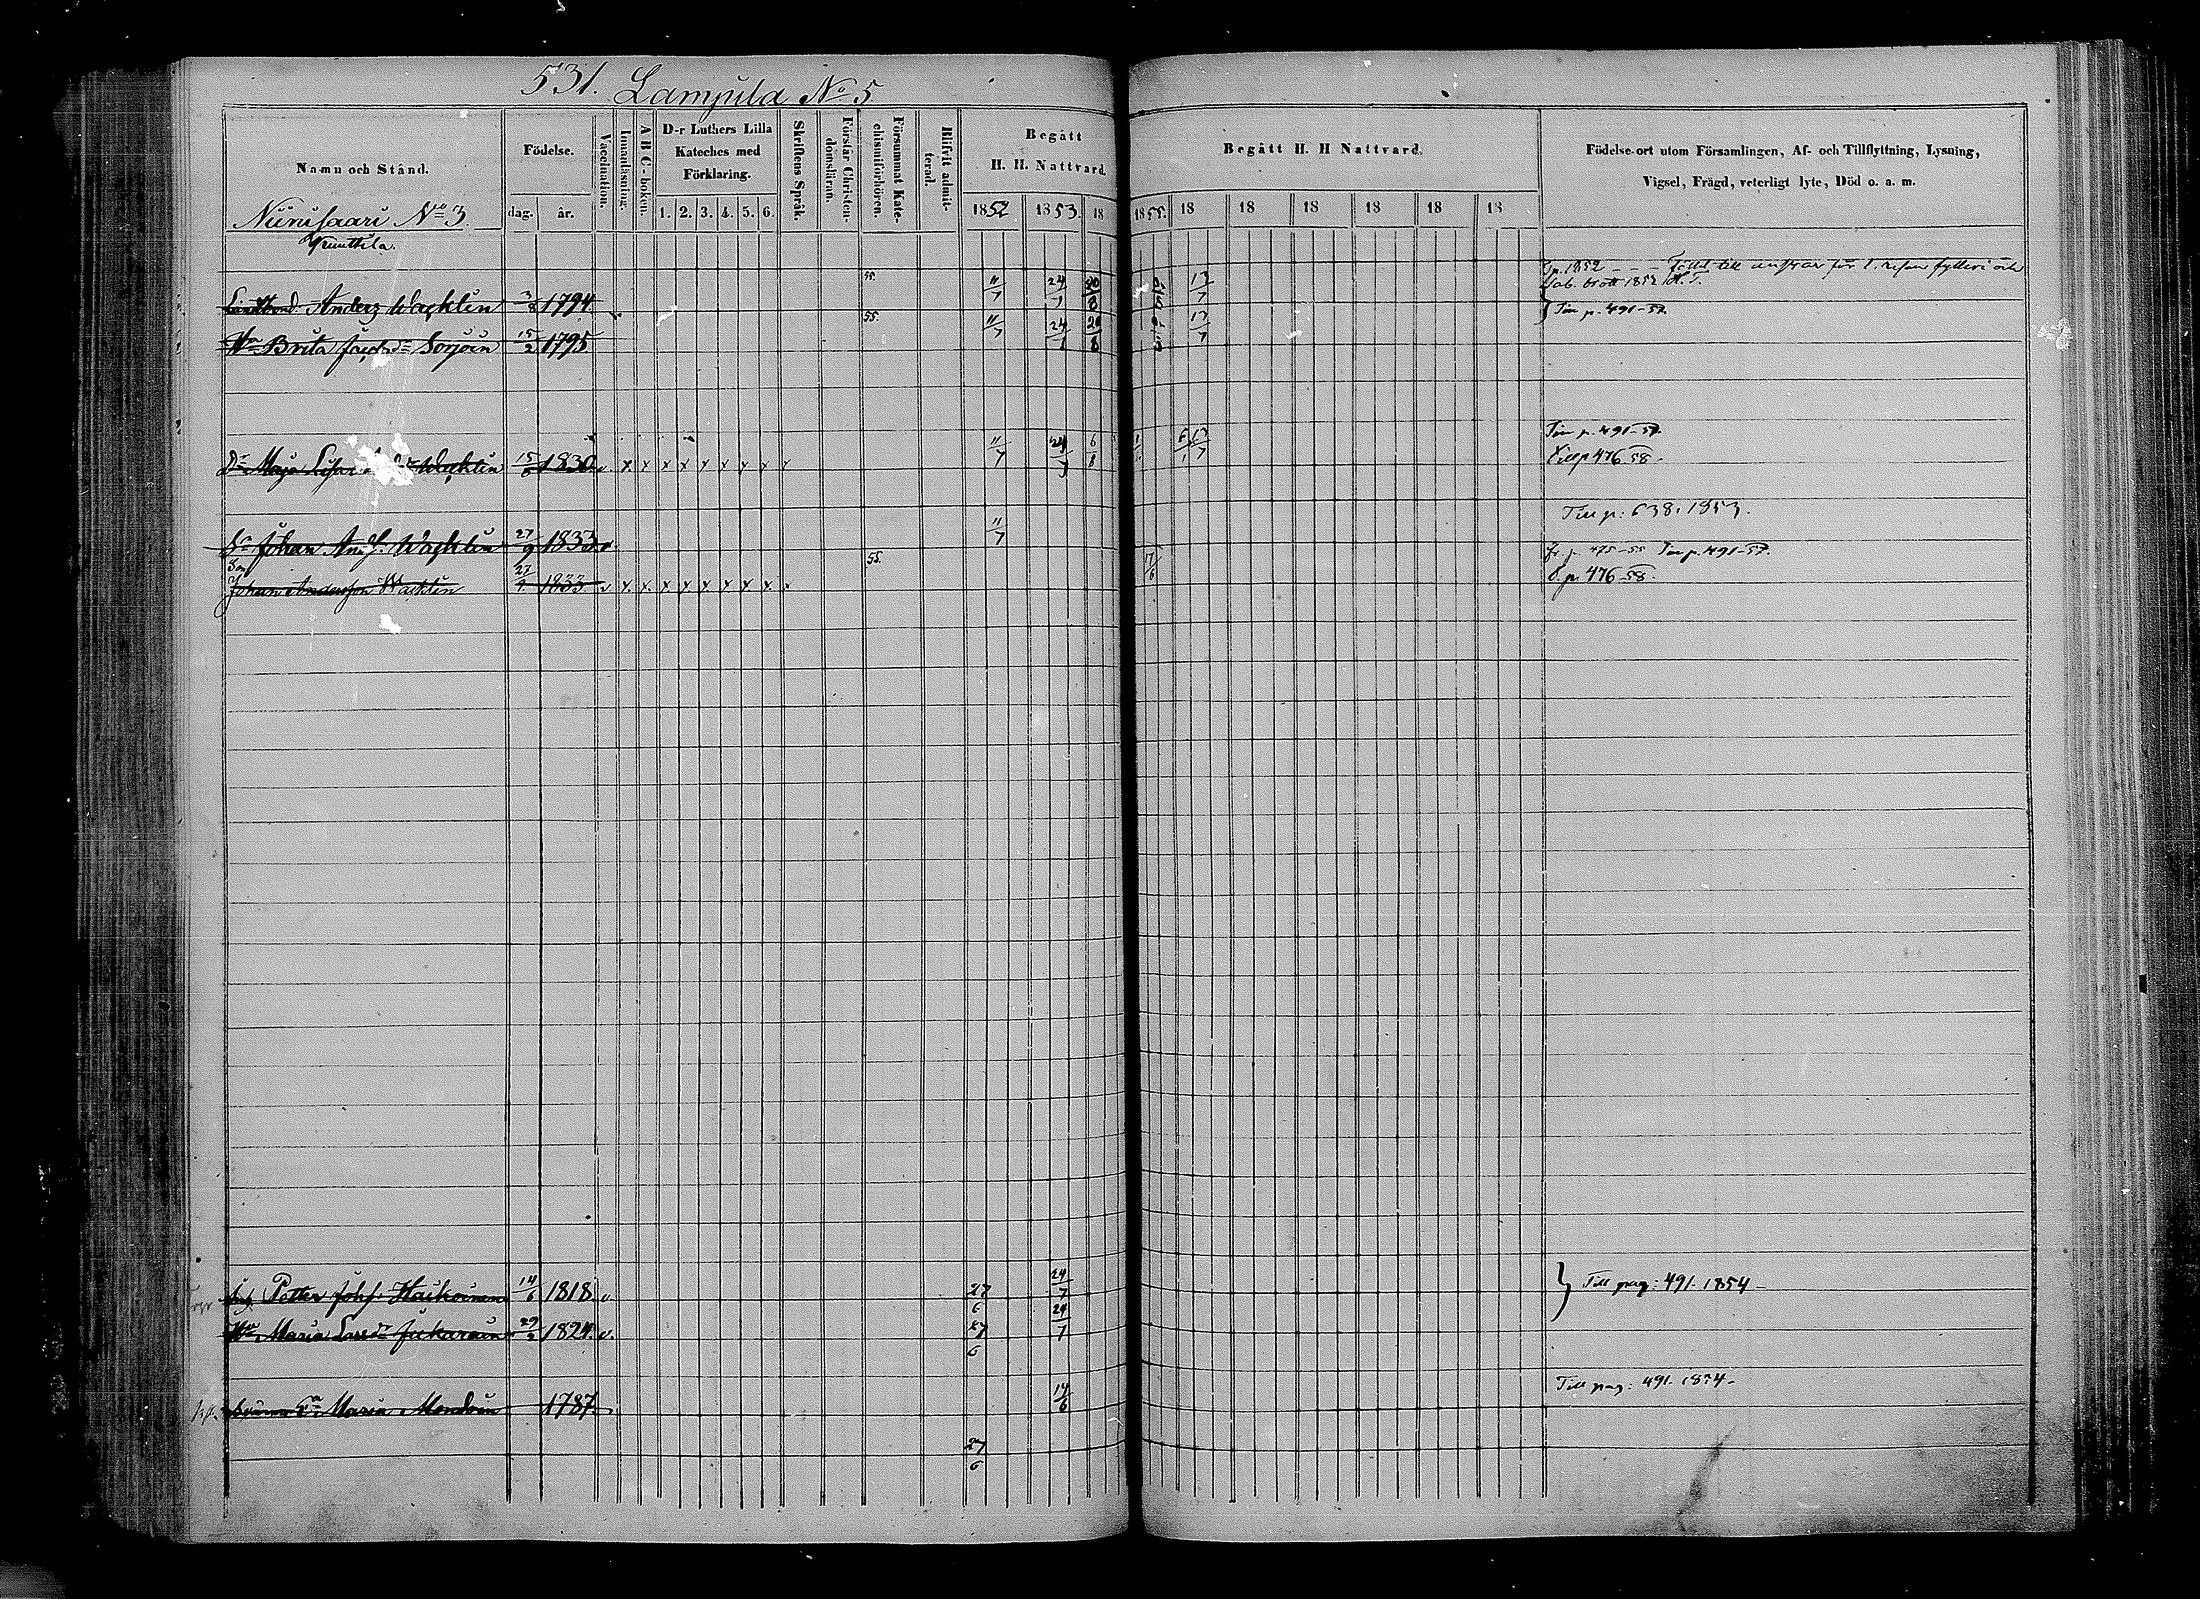 531. Lampila No 5
Namn och Stånd.
Födelse.
dag.
år.
Vaccination.
Innanläsning.
A B C-boken.
D-r Luthers Lilla
Kateches med
Förklaring.
1. 2. 3. 4. 5. 6.
Skriftens Språk.
Förstår Christen-
domsläran.
Försummat Kate-
chismiförhören.
Blifvit admit-
terad.
Begått
H. H. Nattvard.
1852 1853. 18
Begått H. H Nattvard.
1855. 18 18 18 18 18 18
Födelse-ort utom Församlingen, Af- och Tillflyttning, Lysning,
Vigsel, Frägd, veterligt lyte, Död o. a. m.
Niinisaari No 3.
55. 11/7 24/7 20/8 17/7
Anders Wacklin 3/8 1794.
sab. brott 1852 H. T.
Hu Brita Sorjoin 15/2 1795. 55. 11/7 20/8 17/7
Till p. 491-57.
Dr Maja Lisa Wacklin 1830 v x x x x x x x x 11/7 24/7 6/8
Till p. 491-57.
Till p 476-58.
Sn Johan And. Wacklin 27/9 1833 v 11/7
Till p: 638. 1853.
Son
Johan Andersson Wacklin 27/9 1833 v x x x x x x x x 55. 17/6
Fr p. 475-55 Till p. 491-57.
T. p. 476-58.
Petter Johs. Haikoinen 14/6 1818. v 27/6 24/7
Till pag: 491. 1854
Hu Maria Larsdr 29/2 1824. v. 27/6 24/7
Maria 1787. 14/6
Till pag: 491. 1854
27/6